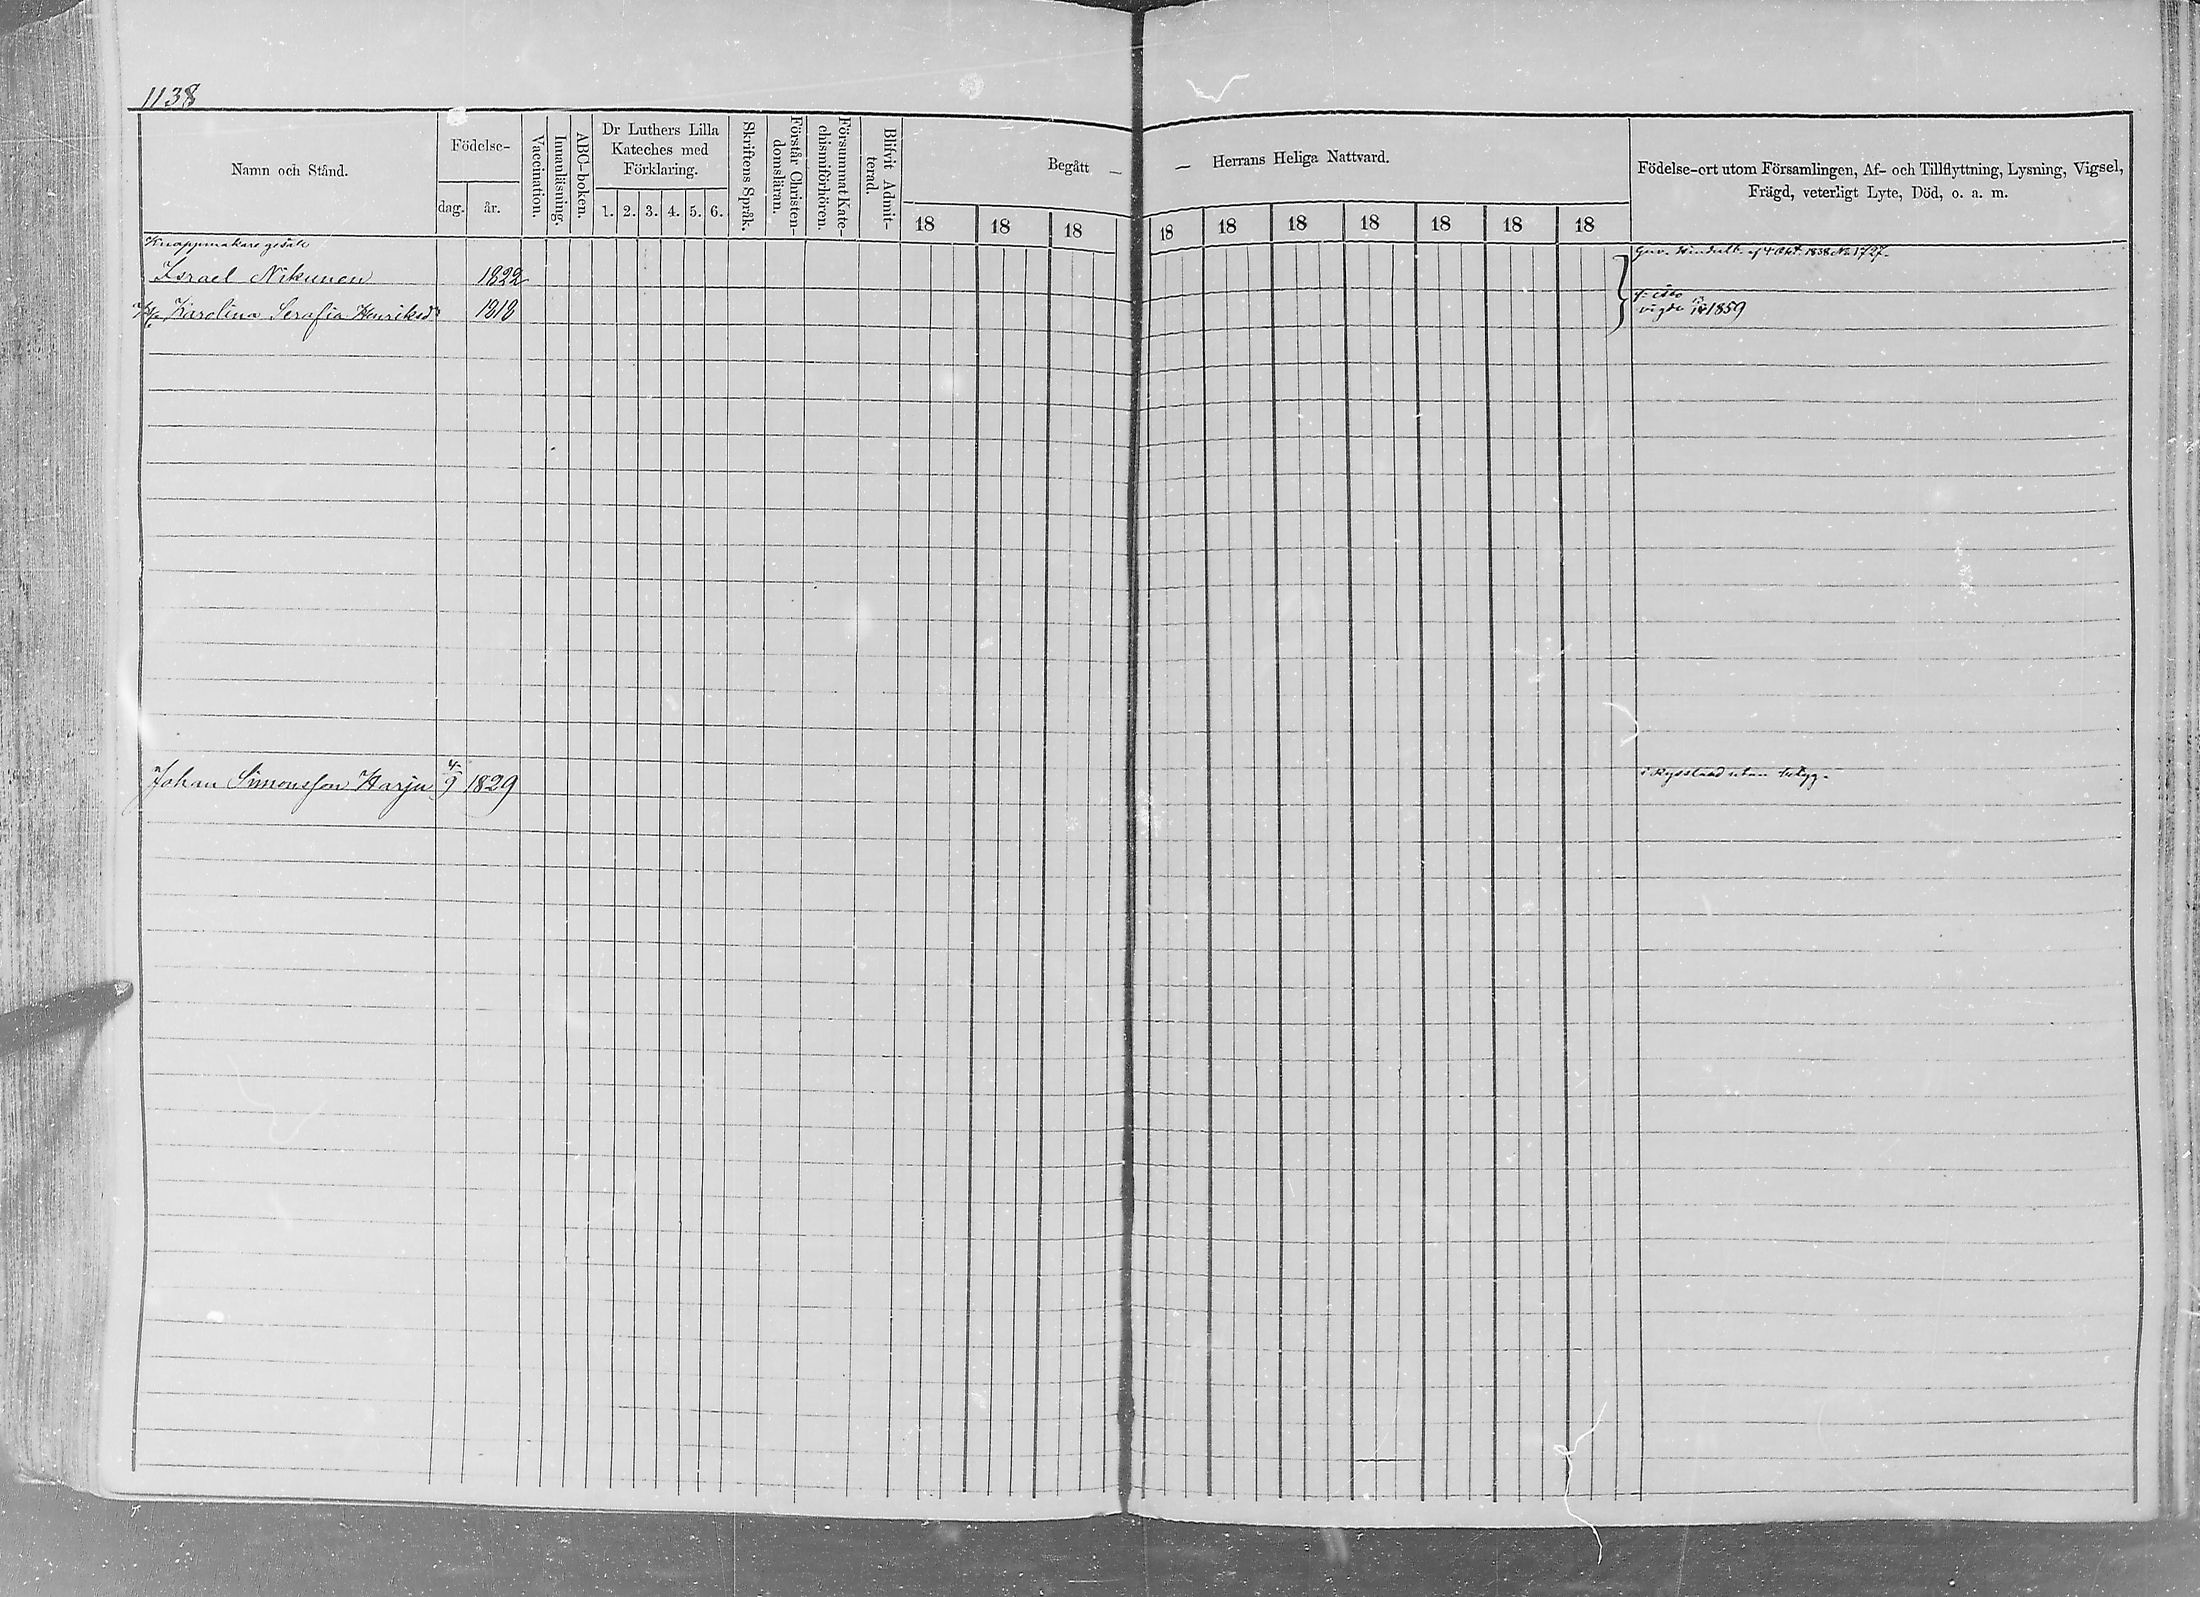 1138
Namn och Stånd.
Födelse-
dag.
år.
Vaccination.
Innanläsning.
ABC-boken.
Dr Luthers Lilla
Kateches med
Förklaring.
1. 2. 3. 4. 5. 6.
Skriftens Språk.
Förstår Christen-
domsläran.
Försummat Kate-
chismiförhören.
Blifvit Admit-
terad.
Begått —
— Herrans Heliga Nattvard.
18 18 18 18 18 18 18 18 18 18
Födelse-ort utom Församlingen, Af- och Tillflyttning, Lysning, Vigsel,
Frägd, veterligt Lyte, Död, o. a. m.
Knappmakare
Israel Nikunen 1822
Karolina Serafia Henriksd:r 1818
af 4 Okt. 1838 No 1727.
vigde 1859
Johan Simonsson Harju 4/9 1829
i Ryssland utan betyg.